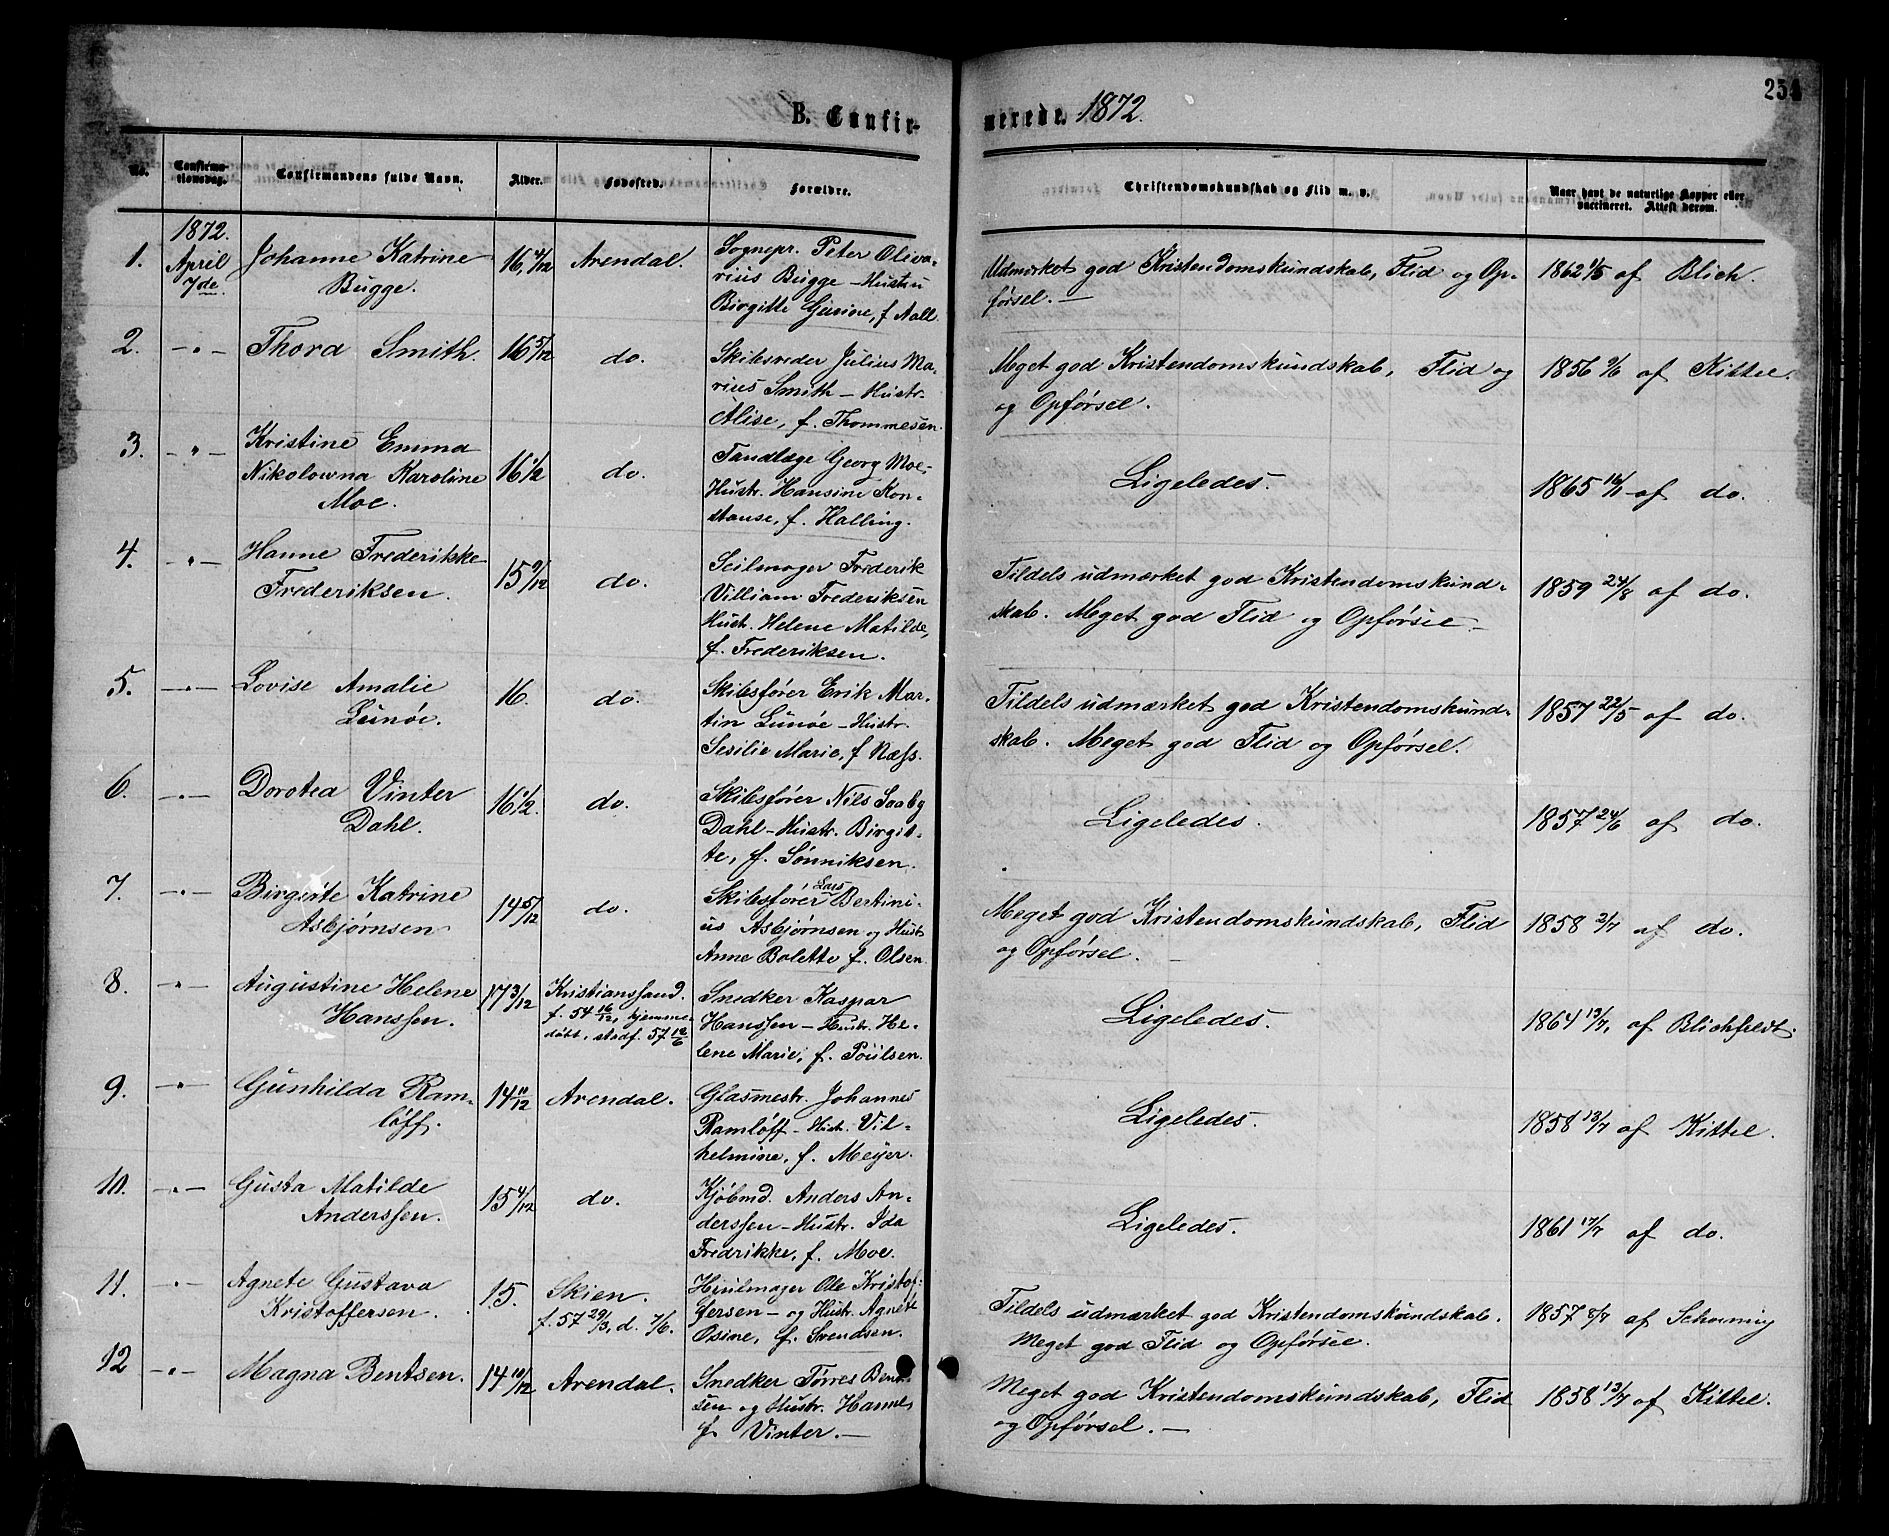 254
B. Confir-
merede. 1872.
No.
Confirma-
tionsdag.
Confirmandens fulde Navn.
Alder.
Fødested.
Forældre.
Christendomskundskab og Flid m. v.
Naar havt de naturlige Kopper eller
vaccineret. Attest derom.
1872.
1. April 7de Johanne Katrine
Bugge.
16 4/12 Arendal.
Sognepr. Peter Oliva-
rius Bugge - Hustru
Birgitte Gurine, f. Aall.
Udmerket god Kristendomskundskab, Flid og Op-
førsel. —
1862 1/5 af Blich.
2. —"— Thora Smith. 16 5/12 do.
Skibsreder Julius Ma-
rius Smith - Hustr.
Alise, f. Thommesen.
Meget god Kristendomskundskab, Flid og
og Opførsel.
1856 9/6 af Kittel.
3. —"— Kristine Emma
Nikolowna Karoline
Moe.
16 1/2 do.
Tandlæge Georg Moe-
Hustr. Hansine Kon-
stanse, f. Halling.
Ligeledes.
1865 16/1 af do.
4. —"— Hanne Frederikke
Frederiksen.
15 9/12 do.
Seilmager Frederik
Villiam Frederiksen
Hust. Helene Matilde,
f. Frederiksen.
Tildels udmærket god Kristendomskund-
skab. Meget god Flid og Opførsel.
1859 24/8 af do.
5. —"— Lovise Amalie
Lunøe.
16. do.
Skibsfører Erik Mar-
tin Lunøe - Hustr.
Sesilie Marie, f. Næss.
Tildels udmærket god Kristendomskund-
skab. Meget god Flid og Opførsel.
1857 22/5 af do.
6. —"— Dorotea Vinter
Dahl.
16 1/2. do.
Skibsfører Nils Saaby
Dahl - Hustr. Birgit-
te, f. Sønniksen.
Ligeledes.
1857 24/6 af do.
7. —"— Birgitte Katrine
Asbjørnsen
14 5/12 do.
Skibsfører Lars Bertini-
us Asbjørnsen og Hust
Anne Bolette f. Olsen.
Meget god Kristendomskundskab, Flid
og Opførsel. —
1858 2/7 af do.
8. —"— Augustine Helene
Hanssen.
17 3/12 Kristianssand.
f. 54 16/12, hjemme-
døbt, stadf. 57 12/6
Snedker Kaspar
Hanssen - Hustr. He-
lene Marie, f. Poulsen.
Ligeledes.
1864 13/7, af Blichfeldt.
9. —"— Gunhilda Ram-
løff.
14 11/12 Arendal.
Glasmestr. Johannes
Ramløff - Hust. Vil-
helmine, f. Meyer.
Ligeledes.
1858 13/7 af Kittel.
10. —"— Gusta Matilde
Anderssen.
15 4/12 do.
Kjøbmd. Anders An-
derssen - Hustr. Ida
Fredrikke, f. Moe.
Ligeledes.
1861 17/7 af do.
11. —"— Agnete Gustava
Kristoffersen.
15. Skien.
f. 57 29/3, d. 7/6.
Hjulmager Ole Kristof-
fersen - og Hustr. Agnete
Osine, f. Svendsen.
Tildels udmærket god Kristendomskundskab.
Meget god Flid og Opførsel.
1857 8/7 af Schouning
12 —"— Magna Bentsen. 14 10/12 Arendal.
Snedker Tørres Bent-
sen og Hustr. Hanne,
f. Vinter. —
Meget god Kristendomskundskab, Flid
og Opførsel. —
1858 13/7 af Kittel.